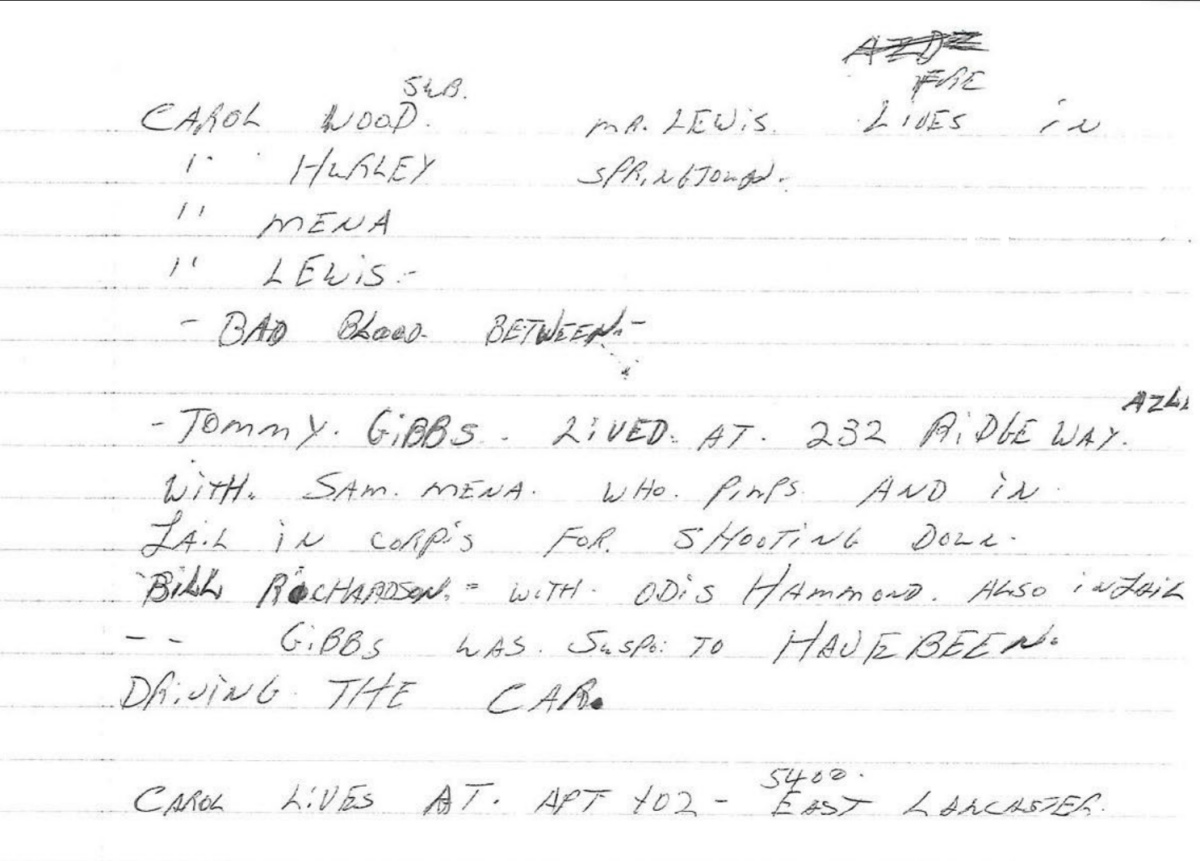 SUB.
CAROL WOOD. MR. LEWIS. LIVES IN
" HURLEY SPRINGTOWN.
" MENA
" LEWIS.-
- BAD BLOOD. BETWEEN.-
- TOMMY. GIBBS. LIVED. AT. 232 RIDGE WAY.
WITH. SAM. MENA. WHO. PIMPS AND IN
JAIL IN CORPIS FOR. SHOOTING DOWN.
BILL RICHARDSON. - WITH. ODIS HAMMOND. ALSO IN JAIL
-- GIBBS WAS. SUSPO. TO HAVE BEEN.
DRIVING. THE CAR.
5400.
CAROL LIVES AT. APT 102 - EAST LANCASTER.